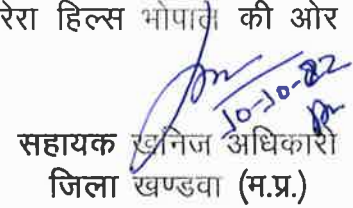 रेरा हिल्स भोपाल की ओर
10-10-22
सहायक खनिज अधिकारी
जिला खण्डवा (म.प्र.)